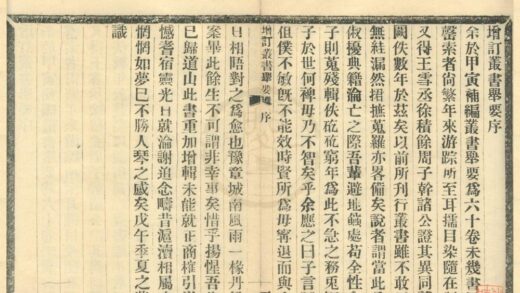 增訂叢書舉要序
余於甲寅補編叢書舉要爲六十卷未幾書
罄索者尙繁年來游踪所至耳擩目染隨在
又得王雪丞徐積餘周子幹諸公證其異同
闕佚數年於茲矣以前所刊行叢書雖不敢
無絓漏然捃摭蒐羅亦畧備矣說者謂當此
俶擾典籍淪亡之際吾輩避地蟲處苟全性
子則蒐殘輯佚矻矻窮年爲此不急之務
子於世何裨毋乃不智矣乎余應之曰子言
但僕不敏旣不能效時賢所爲毋寧退而與
增訂叢書舉要 序
日相晤對之爲愈也豫章城南風雨一椽丹
案畢此餘生不可謂非幸事矣惜乎揚惺吾
已歸道山此書重加增輯未能就正商榷引
憾耆宿靈光日就淪謝追念疇昔滬瀆相屬
惘惘如夢已不勝人琴之感矣戊午季夏之
識